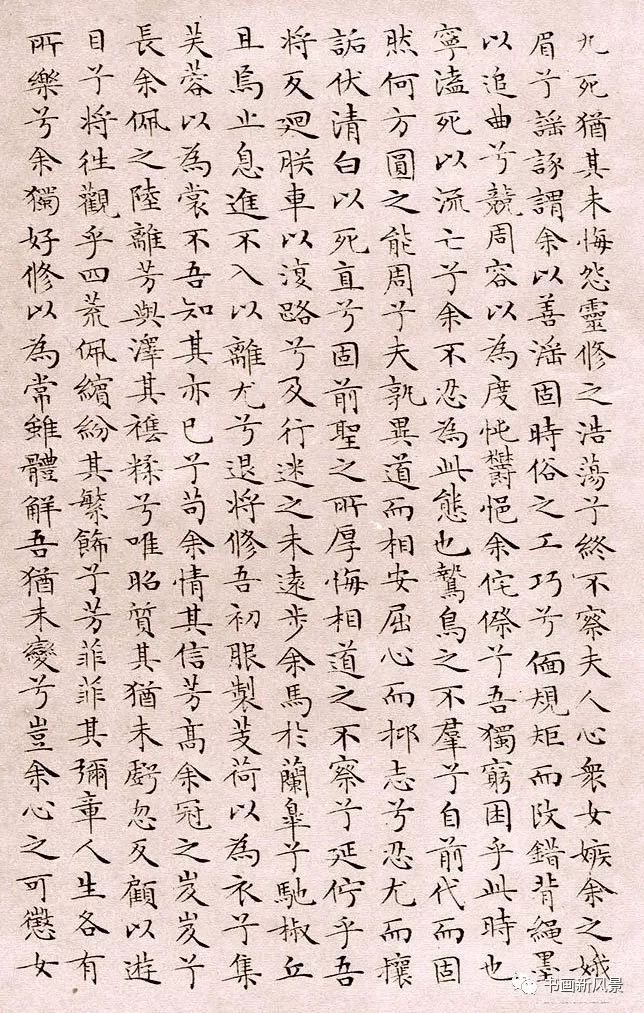 九死猶其未悔怨靈修之浩蕩兮終不察夫人心衆女嫉余之蛾
眉兮謡諑謂余以善淫固時俗之工巧兮偭規矩而改錯背繩墨
以追曲兮競周容以為度忳鬱悒余侘傺兮吾獨窮困乎此時也
寧溘死以流亡兮余不忍為此態也鷙鳥之不羣兮自前代而固
然何方圓之能周兮夫孰異道而相安屈心而抑志兮忍尤而攘
詬伏清白以死直兮固前聖之所厚悔相道之不察兮延佇乎吾
將反廻朕車以復路兮及行迷之未遠步余馬於蘭皋兮馳椒丘
且焉止息進不入以離尤兮退將修吾初服製芰荷以為衣兮集
芙蓉以為裳不吾知其亦已兮苟余情其信芳高余冠之岌岌兮
長余佩之陸離芳與澤其雜糅兮唯昭質其猶未虧忽反顧以遊
目兮將往觀乎四荒佩繽紛其繁飾兮芳菲菲其彌章人生各有
所樂兮余獨好修以為常雖體解吾猶未變兮豈余心之可懲女
书画新风景